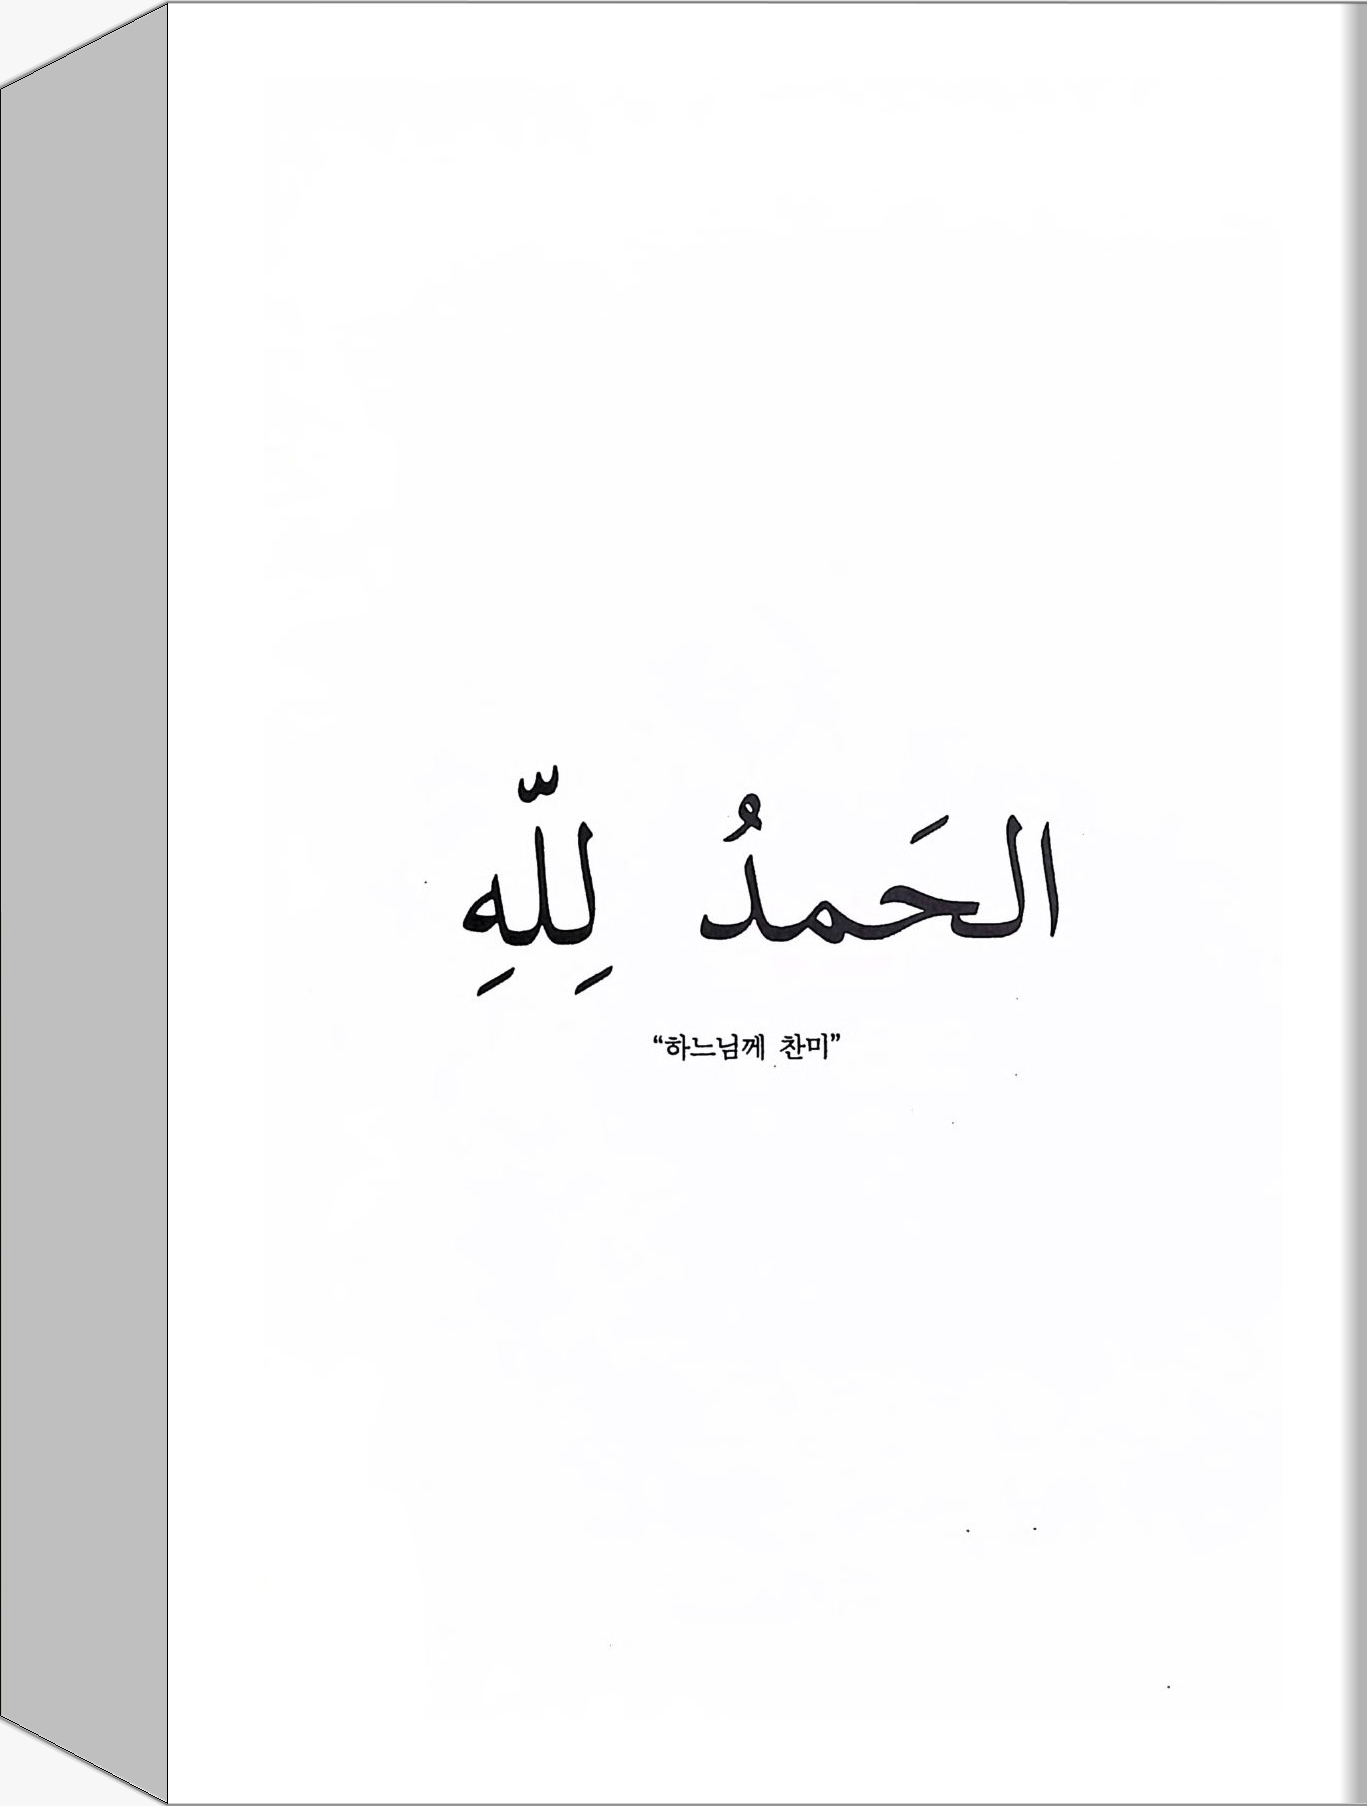 الحَمدُ لِلّهِ
“하느님께 찬미”